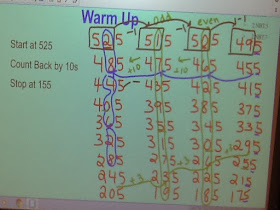 Warm Up
odd even
-1 -1 -1
Start at 525
525 515 505 495
+10 +10
Count Back by 10s
485 475 465 455
Stop at 155
445 435 425 415
405 395 385 375
365 355 345 335
325 315 305 295
285 275 265 255
+3
245 235 225 215
+3
205 195 185 175